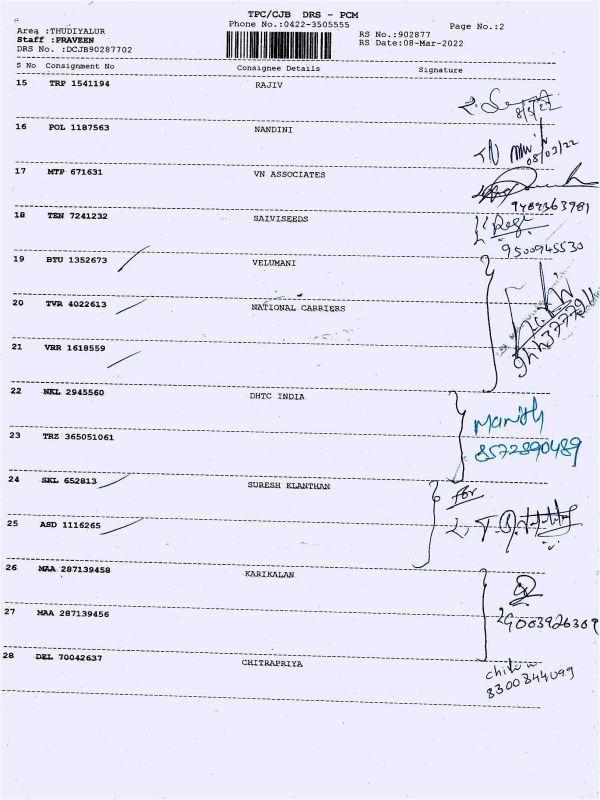 TPC/CJB DRS - PCM
Phone No.:0422-3505555
Page No.:2
Area :THUDIYALUR
Staff :PRAVEEN
DRS No. :DCJB90287702
RS No.:902877
RS Date:08-Mar-2022
S No Consignment No Consignee Details Signature
15 TRP 1541194 RAJIV
8/3/22
16 POL 1187563 NANDINI
08/03/22
17 MTP 671631 VN ASSOCIATES
9489363981
18 TEN 7241232 SAIVISEEDS
9500945530
19 BTU 1352673 VELUMANI
20 TVR 4022613 NATIONAL CARRIERS
21 VRR 1618559
22 NKL 2945560 DHTC INDIA
Manish
8572890489
23 TRZ 365051061
24 SKL 652813 SURESH KLANTHAN
for
25 ASD 1116265
26 MAA 287139458 KARIKALAN
27 MAA 287139456
9003926309
28 DEL 70042637 CHITRAPRIYA
8300844099